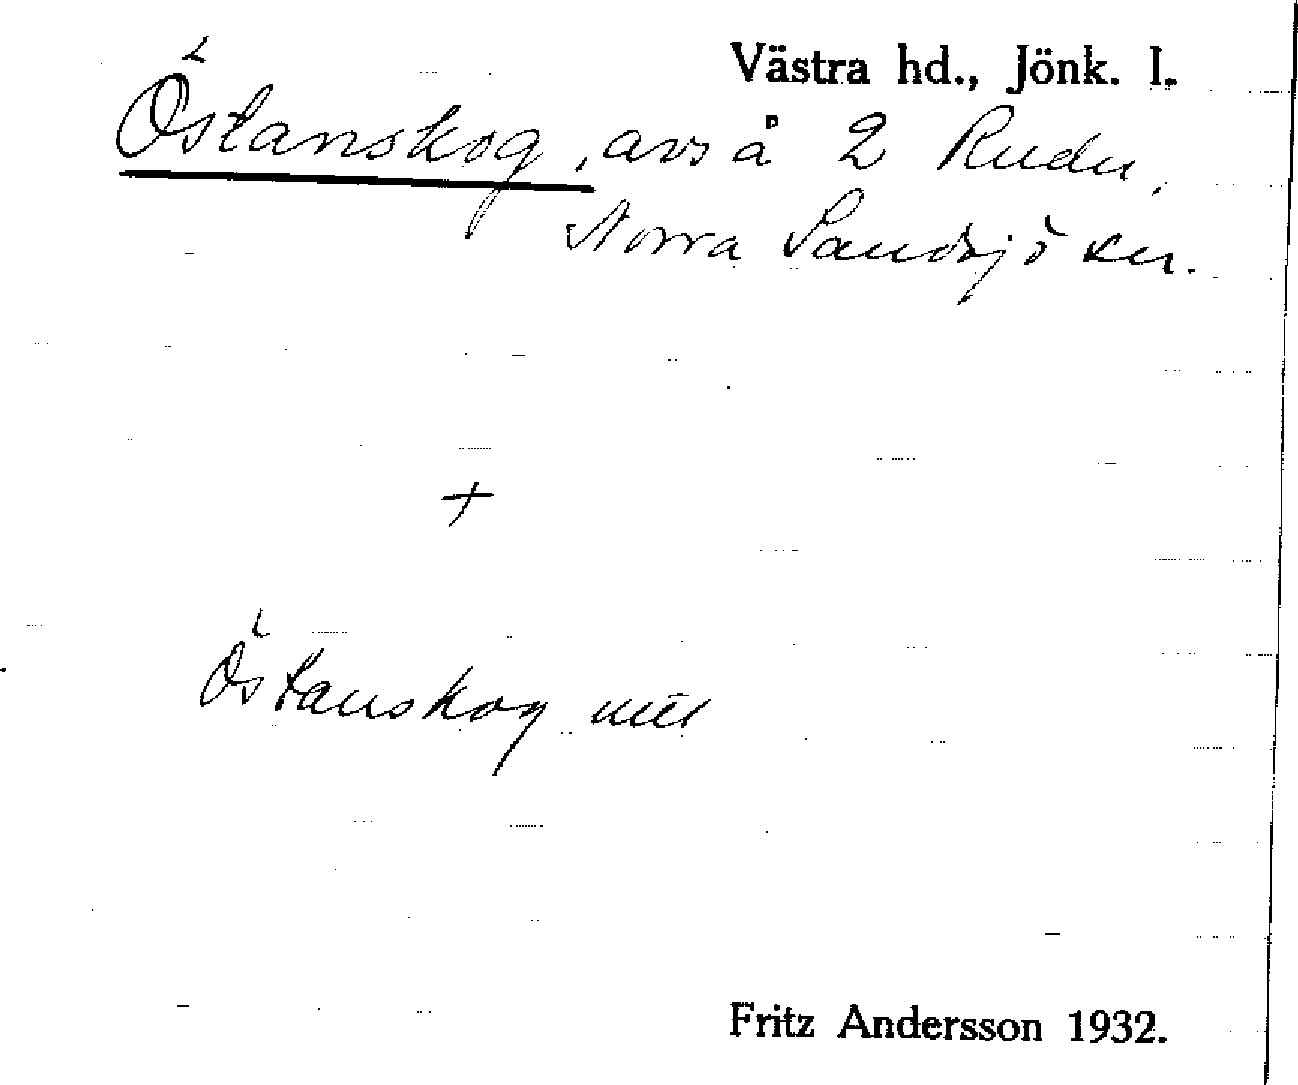 Västra hd., Jönk. l.
Östanskog, avs å 2 Rudu,
Norra Sandsjö sn.
+
Östanskog
Fritz Andersson 1932.